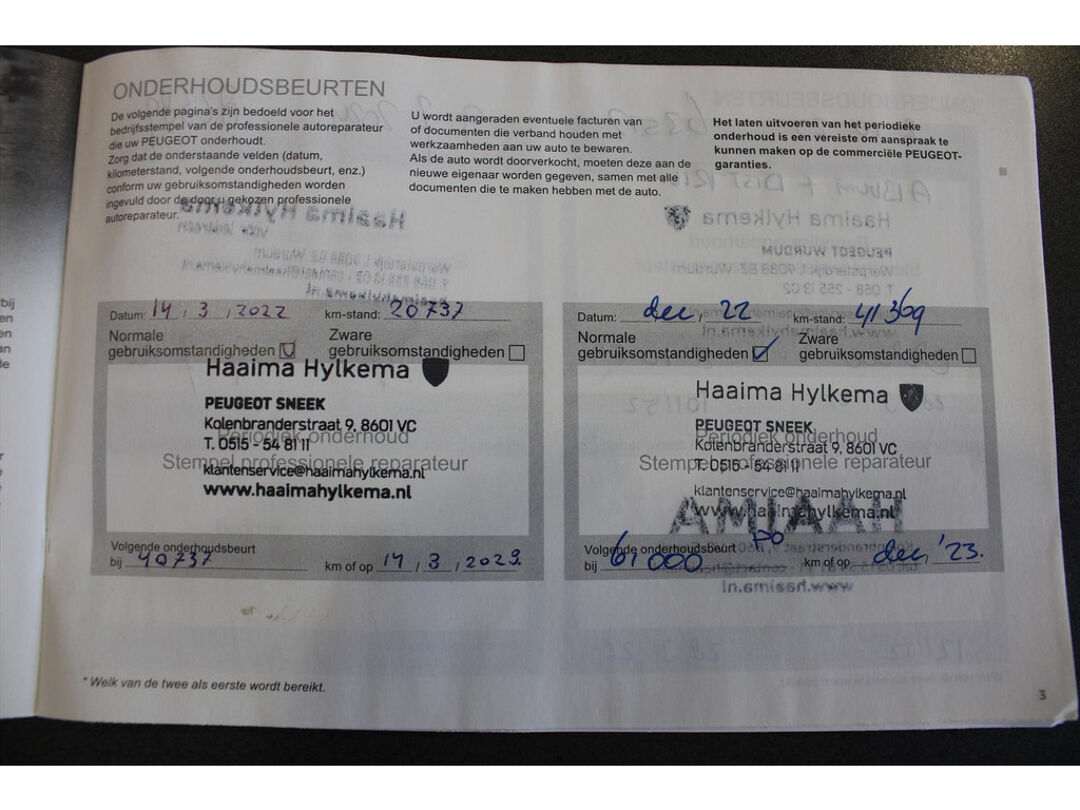 ONDERHOUDSBEURTEN
De volgende pagina's zijn bedoeld voor het
bedrijfsstempel van de professionele autoreparateur
die uw PEUGEOT onderhoudt.
Zorg dat de onderstaande velden (datum,
kilometerstand, volgende onderhoudsbeurt, enz.)
conform uw gebruiksomstandigheden worden
ingevuld door de door u gekozen professionele
autoreparateur.
U wordt aangeraden eventuele facturen van
of documenten die verband houden met
werkzaamheden aan uw auto te bewaren.
Als de auto wordt doorverkocht, moeten deze aan de
nieuwe eigenaar worden gegeven, samen met alle
documenten die te maken hebben met de auto.
Het laten uitvoeren van het periodieke
onderhoud is een vereiste om aanspraak te
kunnen maken op de commerciële PEUGEOT-
garanties.
Datum: 14, 3, 2022 km-stand: 20737
Normale
gebruiksomstandigheden
Zware
gebruiksomstandigheden
Haaima Hylkema
PEUGEOT SNEEK
Kolenbranderstraat 9, 8601 VC
Periodiek onderhoud
T. 0515 - 54 81 11
Stempel professionele reparateur
klantenservice@haaimahylkema.nl
www.haaimahylkema.nl
Volgende onderhoudsbeurt
bij 40737 km of op 14, 3, 2023.
Datum: dec, 22 km-stand: 41369
Normale
gebruiksomstandigheden
Zware
gebruiksomstandigheden
Haaima Hylkema
PEUGEOT SNEEK
Periodiek onderhoud
Kolenbranderstraat 9, 8601 VC
Stempel professionele reparateur
T. 0515 - 54 81 11
klantenservice@haaimahylkema.nl
www.haaimahylkema.nl
Volgende onderhoudsbeurt PO
bij 61000 km of op dec, '23.
* Welk van de twee als eerste wordt bereikt.
3